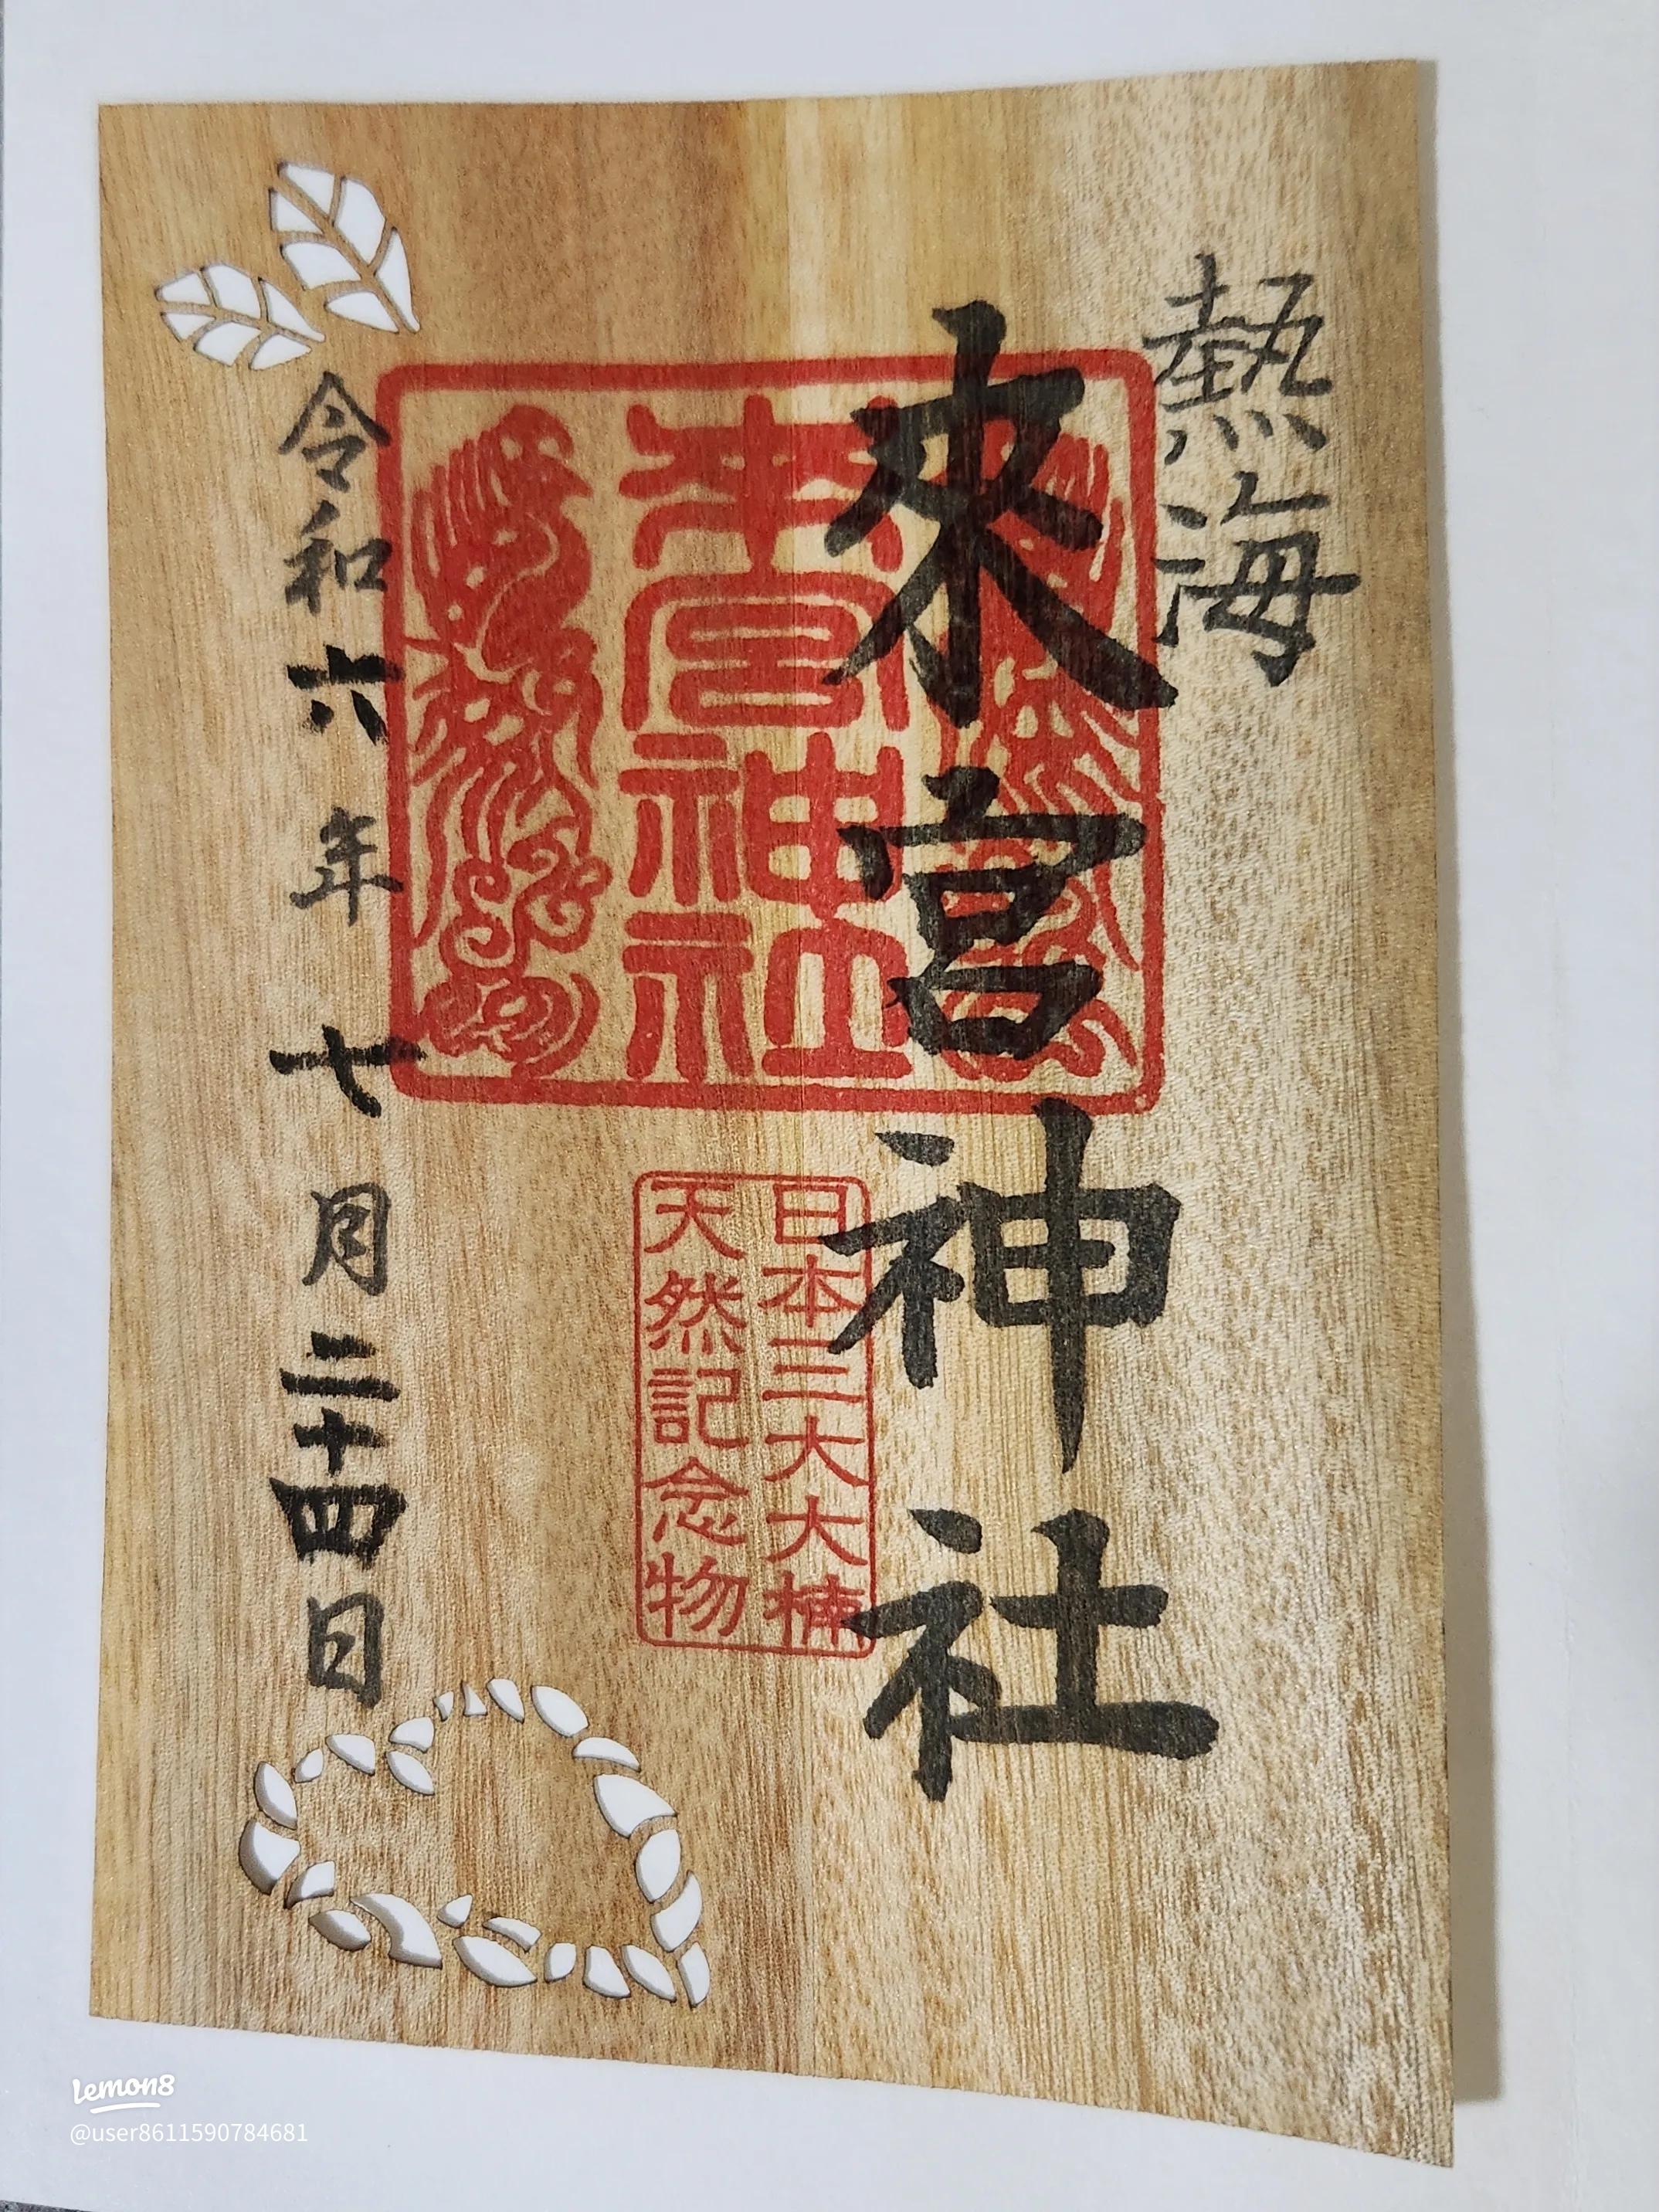 熱海
來宮神社
來宮神社
日本三大大楠
天然記念物
令和六年七月二十四日
lemon8
@user8611590784681